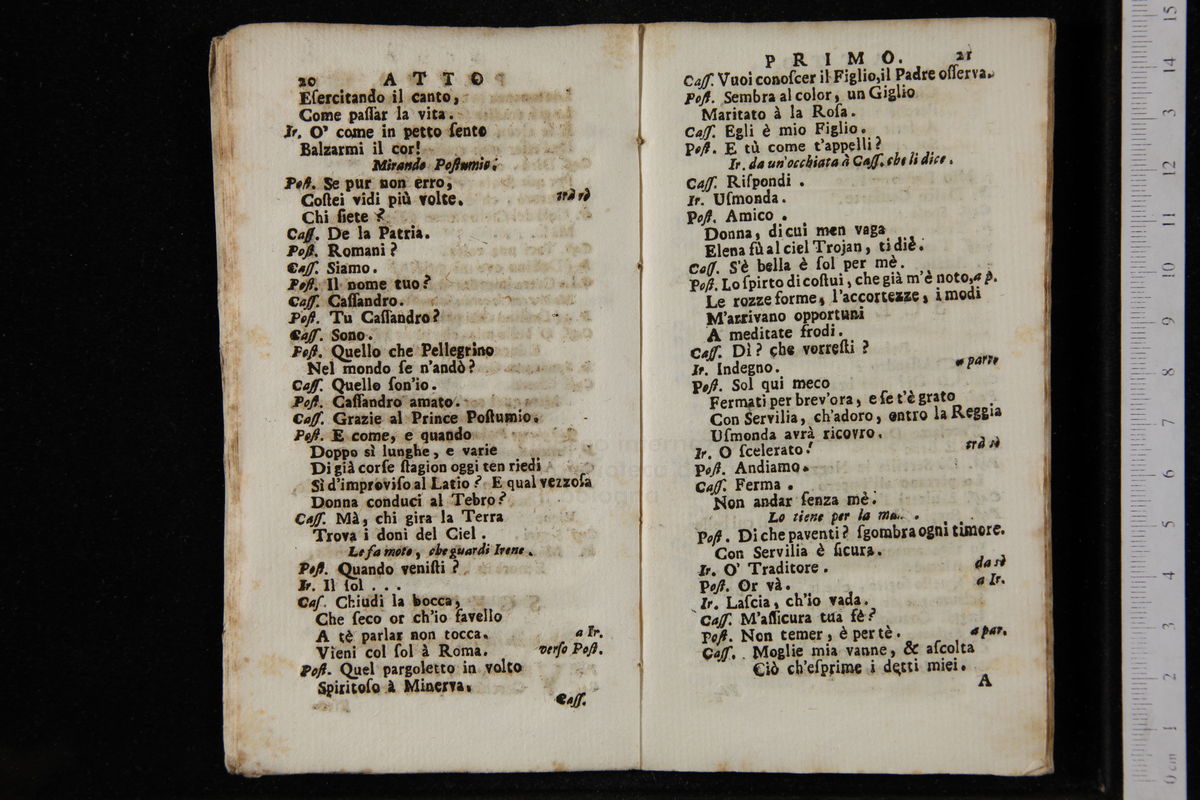 20 ATTO
Eſercitando il canto,
Come paſſar la vita.
Ir. O' come in petto ſento
Balzarmi il cor!
Mirando Poſtumio.
Poſt. Se pur non erro,
Coſtei vidi più volte. trà sè
Chi ſiete?
Caſſ. De la Patria.
Poſt. Romani?
Caſſ. Siamo.
Poſt. Il nome tuo?
Caſſ. Caſſandro.
Poſt. Tu Caſſandro?
Caſſ. Sono.
Poſt. Quello che Pellegrino
Nel mondo ſe n'andò?
Caſſ. Quello ſon'io.
Poſt. Caſſandro amato.
Caſſ. Grazie al Prince Poſtumio.
Poſt. E come, e quando
Doppo sì lunghe, e varie
Di già corſe ſtagion oggi ten riedi
Sì d'improviſo al Latio? E qual vezzoſa
Donna conduci al Tebro?
Caſſ. Mà, chi gira la Terra
Trova i doni del Ciel.
Le fa moto, che guardi Irene.
Poſt. Quando veniſti?
Ir. Il ſol . . .
Caſ. Chiudi la bocca,
Che ſeco or ch'io favello
A tè parlar non tocca. a Ir.
Vieni col ſol à Roma. verſo Poſt.
Poſt. Quel pargoletto in volto
Spiritoſo à Minerva.
Caſſ.
PRIMO. 21
Caſſ. Vuoi conoſcer il Figlio, il Padre oſſerva.
Poſt. Sembra al color, un Giglio
Maritato à la Roſa.
Caſſ. Egli è mio Figlio.
Poſt. E tù come t'appelli?
Ir. da un'occhiata à Caſſ. che li dice.
Caſſ. Riſpondi.
Ir. Uſmonda.
Poſt. Amico.
Donna, di cui men vaga
Elena fù al ciel Trojan, ti diè.
Caſſ. S'è bella è ſol per mè.
Poſt. Lo ſpirto di coſtui, che già m'è noto, a p.
Le rozze forme, l'accortezze, i modi
M'arrivano opportuni
A meditate frodi.
Caſſ. Dì? che vorreſti?
Ir. Indegno. a parte
Poſt. Sol qui meco
Fermati per brev'ora, e ſe t'è grato
Con Servilia, ch'adoro, entro la Reggia
Uſmonda avrà ricovro.
Ir. O ſcelerato! trà sè
Poſt. Andiamo.
Caſſ. Ferma.
Non andar ſenza mè.
Lo tiene per la
Poſt. Di che paventi? ſgombra ogni timore.
Con Servilia è ſicura.
Ir. O' Traditore. da sè
Poſt. Or và. a Ir.
Ir. Laſcia, ch'io vada.
Caſſ. M'aſſicura tua fè?
Poſt. Non temer, è per tè. a par.
Caſſ. Moglie mia vanne, & aſcolta
Ciò ch'eſprime i detti miei.
A